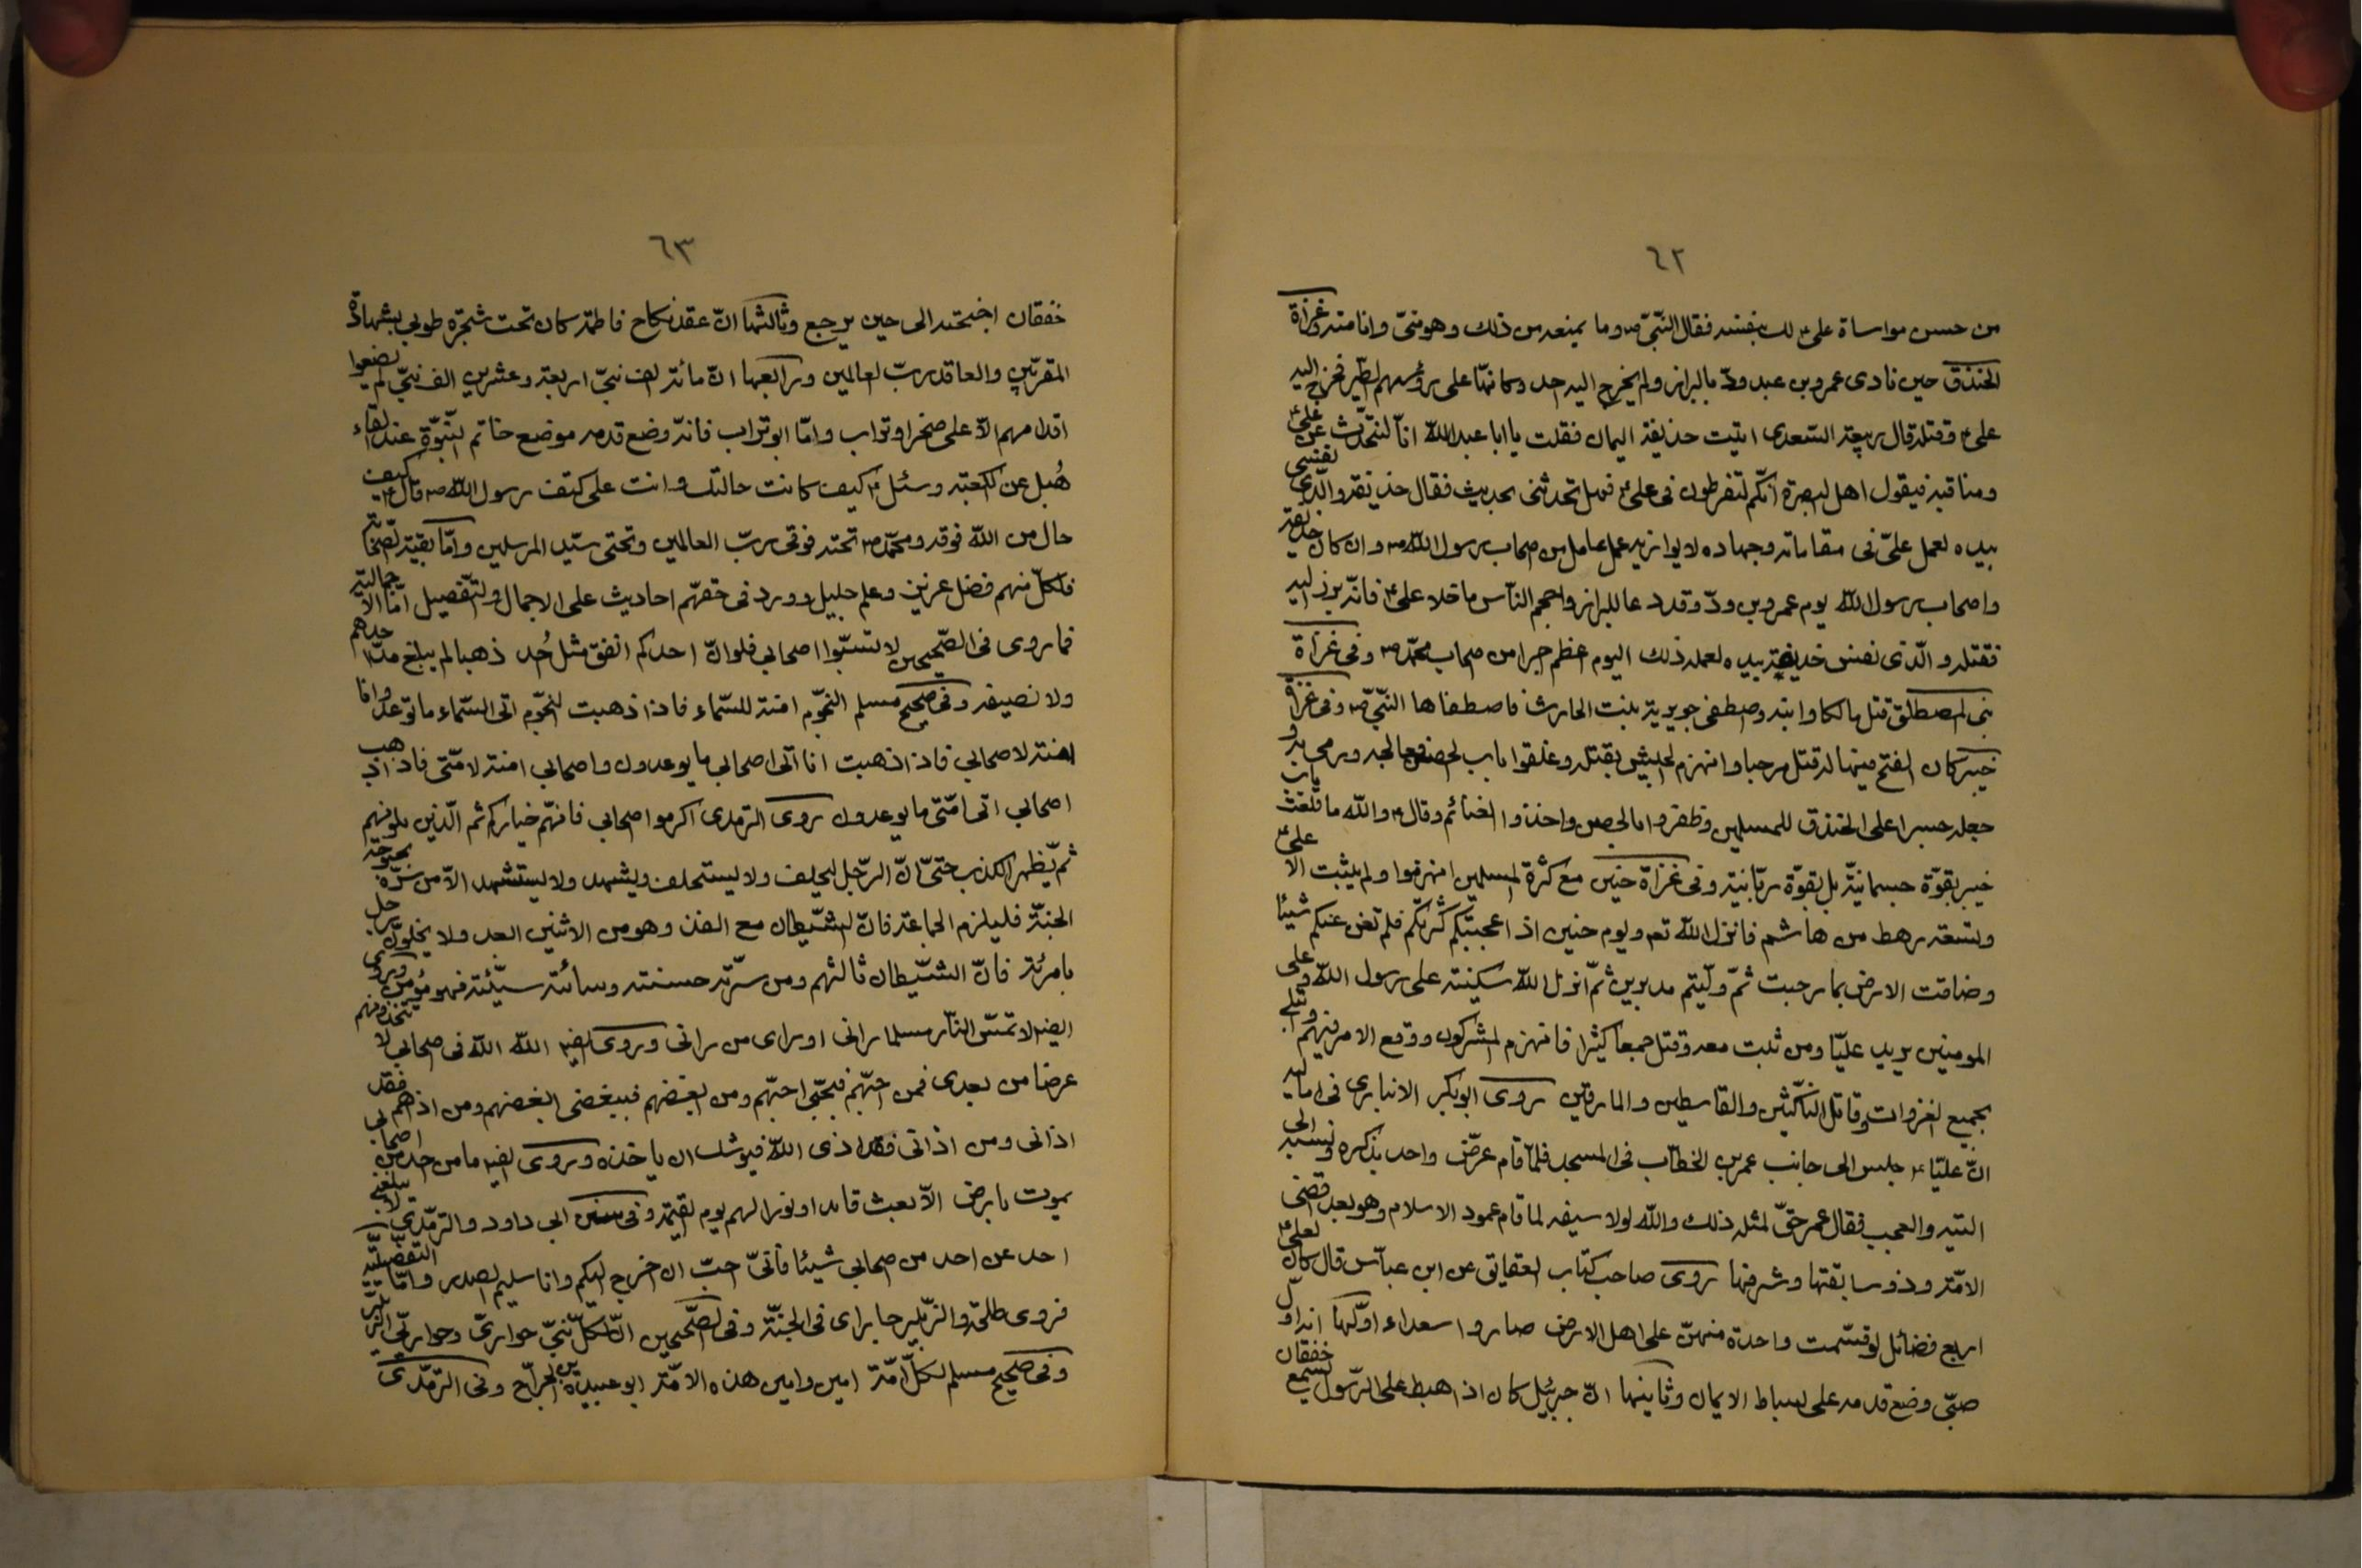 ٦٢
من حسن مواساة علىؑ لك بنفسه فقال النّبىّ ص وما يمنعه من ذلك وهو منىّ وانا منه وغزاة
الخندق حين نادى عمرو بن عبد ودّ بالبراز ولم يخرج اليه احد وكانمّا على رؤسهم الطّير فخرج اليه
علىؑ وقتله قال ربيعة السّعدى اتيت حذيفة اليمان فقلت يا ابا عبد اللّه انّا لنتحدّث عن علىؑ
ومناقبه فيقول اهل البصرة انّكم لتفرطون فى علىؑ فهل تحدثنى بحديث فقال حذيفة والّذى نفسى
بيده لعمل علىّ فى مقاماته وجهاده لا يوازيه عمل عامل من اصحاب رسول اللّه ص وان كان حذيفة
واصحاب رسول اللّه يوم عمرو بن ودّ وقد دعا للبراز واحجم النّاس ما خلا علىؑ فانّه برز اليه
فقتله والّذى نفس حذيفة بيده لعمله ذلك اليوم اعظم اجرا من اصحاب محمّد ص وفى غزاة
بنى المصطلق قتل مالكا وابنه واصطفى جويرية بنت الحارث فاصطفاها النّبىّ ص وفى غزاة
خيبر كان الفتح فيها له قتل مرحبا وانهزم الجيش بقتله وغلقوا باب الحصن فعالجه ورمى به و
جعله جسرا على الخندق للمسلمين وظفروا بالحصن واخذوا الغنائم وقالؑ واللّه ما قلعت باب
خيبر بقوّة جسمانيّة بل بقوّة ربّانية وفى غزاة حنين مع كثرة المسلمين انهزموا ولم يثبت الا علىؑ
وتسعة رهط من هاشم فانزل اللّه تع ويوم حنين اذ اعجبتكم كثرتكم فلم تغن عنكم شيئا
وضاقت الارض بما رحبت ثمّ ولّيتم مدبرين ثمّ انزل اللّه سكينته على رسول اللّه وعلى
المومنين يريد عليّا ومن ثبت معه وقتل جمعا كثيرا فانهزم المشركون ووقع الامر فيهم وابتلى
بجميع الغزوات وقاتل النّاكثين والقاسطين والمارقين روى ابو بكر الانبارى فى اماليه
انّ عليّاؑ جلس الى جانب عمر بن الخطّاب فى المسجد فلمّا قام عرّض واحد بذكره ونسبه الى
التيه والعجب فقال عمر حقّ لمثله ذلك واللّه لولا سيفه لما قام عمود الاسلام وهو بعد اقضى
الامّة وذو سابقتها وشرفها روى صاحب كتاب العقايق عن ابن عبّاس قال كان لعلىؑ
اربع فضائل لو قسّمت واحدة منهنّ على اهل الارض صاروا سعداء اوّلها انه اوّل
صبىّ وضع قدمه على بساط الايمان وثانيها انّ جبرئيل كان اذا هبط على الرّسول يسمع خفقان
٦٣
خفقان اجنحته الى حين يرجع وثالثها انّ عقد نكاح فاطمة كان تحت شجرة طوبى بشهادة
المقرّبين والعاقد ربّ العالمين ورابعها انّ مائة الف نبىّ اربعة وعشرين الف نبىّ لم يضعوا
اقدامهم الّا على صخر او تراب وامّا ابو تراب فانّه وضع قدمه موضع خاتم النّبوّة عند القاء
هُبل عن الكعبة وسئلؑ كيف كانت حالتك وانت على كتف رسول اللّه ص قالؑ كيف
حال من اللّه فوقه ومحمّد ص تحته فوقى ربّ العالمين وتحتى سيّد المرسلين وامّا بقيّة الصّحابة
فلكلّ منهم فضل عزيز وعلم جليل وورد فى حقّهم احاديث على الاجمال والتّفصيل امّا الاجمالية
فما روى فى الصّحيحين لا تسبّوا اصحابى فلو انّ احدكم انفق مثل اُحد ذهبا لم يبلغ مدّ احدهم
ولا نصيفه وفى صحيح مسلم النّجوم امنة للسّماء فاذا ذهبت النّجوم اتى السّماء ما توعد وانا
امنة لاصحابى فاذا ذهبت انا اتى اصحابى ما يوعدون واصحابى امنة لامّتى فاذا ذهب
اصحابى اتى امّتى ما يوعدون روى الترمدى اكرموا اصحابى فانّهم خياركم ثم الّذين يلونهم
ثم يظهر الكذب حتىّ انّ الرّجل ليحلف ولا يستحلف ويشهد ولا يستشهد الّا من سرّه بحبوحة
الجنّة فليلزم الجماعة فانّ الشّيطان مع الفذ وهو من الاثنين ابعد ولا يخلونّ رجل
بامرئة فانّ الشّيطان ثالثهم ومن سرّته حسنته وسائته سيّئته فهو مؤمن وروى
ايضا لا تمسّ النّار مسلما رانى او راى من رانى وروى ايضا اللّه اللّه فى اصحابى لا تتّخذوهم
غرضا من بعدى فمن احبّهم فبحبّى احبّهم ومن ابغضهم فببغضى ابغضهم ومن اذاهم فقد
اذانى ومن اذانى فقد اذى اللّه فيوشك ان ياخذه وروى ايضا ما من احد من اصحابى
يموت بارض الّا بعث قائدا ونورا لهم يوم القيمة وفى سنن ابى داود والترمّدى لا يبلغنى
احد عن احد من اصحابى شيئا فانّى احبّ ان اخرج اليكم وانا سليم الصدر وامّا التفصيلية
فروى طلحة والزّبير جاراى فى الجنّة وفى الصّحيحين انّ لكلّ نبىّ حوارىّ وحوارىّ الزّبير
وفى صحيح مسلم لكلّ امّة امين وامين هذه الامّة ابو عبيدة بن الجرّاح وفى الترمّدى